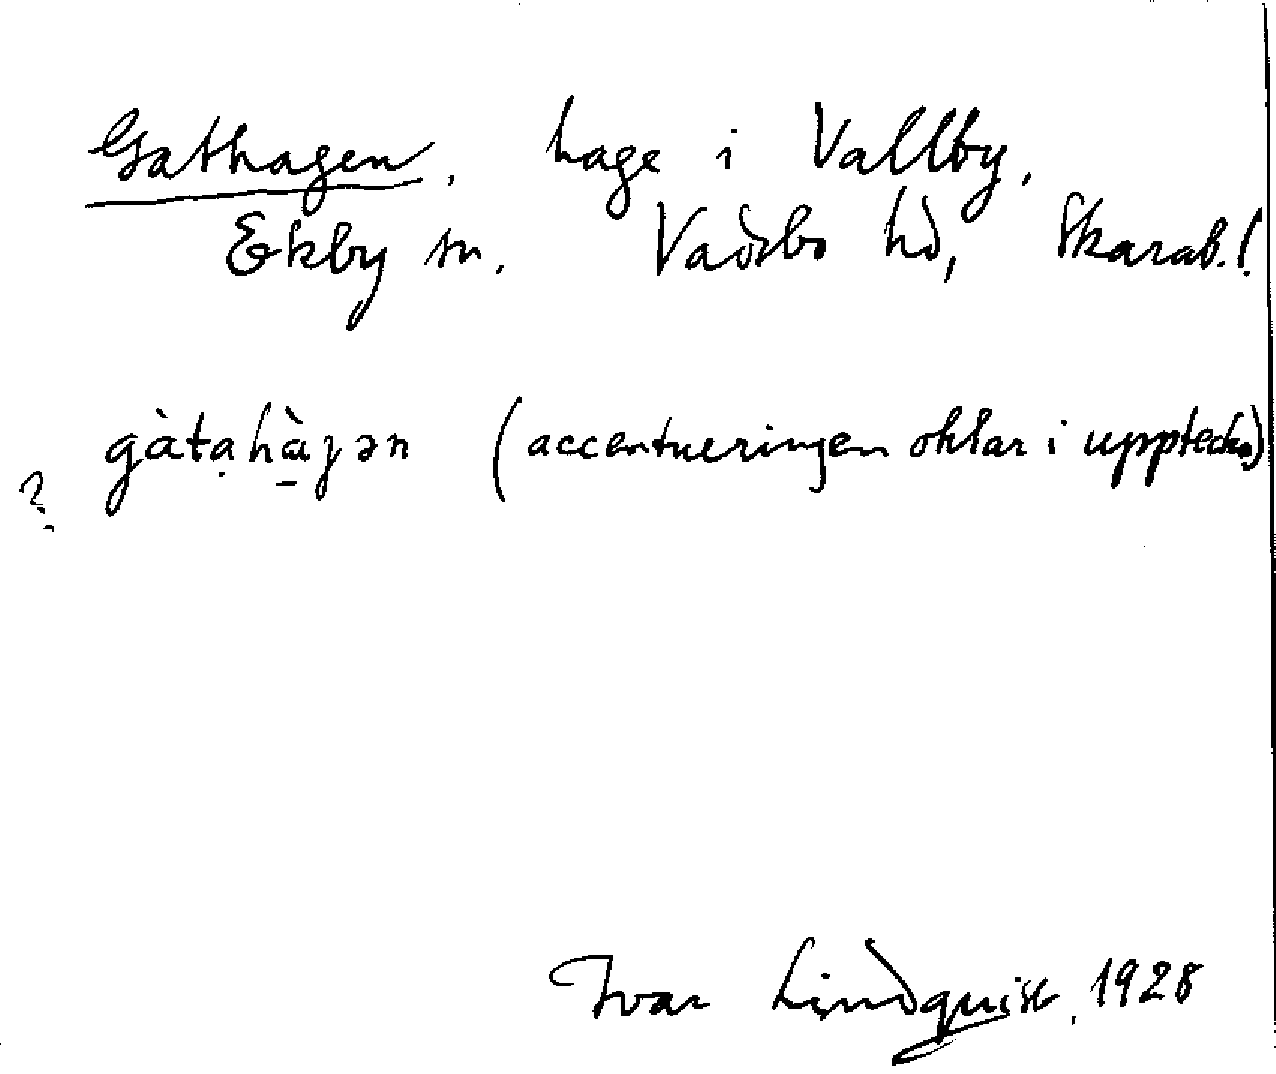 Gathagen, hage i Vallby,
Ekby sn. Vadsbo hd, Skarab. l.
? gàtahàgən (accentueringen oklar i uppteckn.)
Ivar Lindquist, 1928